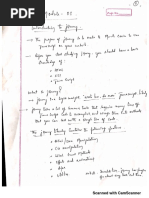 Module - 03
Introduction to jQuery
→ The purpose of jQuery is to make it much easier to use
JavaScript on your website.
→ Before you start studying jQuery, you should have a basic
knowledge of
* HTML
* CSS
* JavaScript
What is jQuery?
→ jQuery is a lightweight, "write less, do more", JavaScript library
→ jQuery takes a lot of common tasks that require many lines of
JavaScript code to accomplish, and wraps them into methods
that you can call with a single line of code.
The jQuery library contains the following features:
* HTML/DOM manipulation
* CSS manipulation
* HTML event methods
* Effects and animations
* AJAX
* Utilities
Scanned with CamScanner